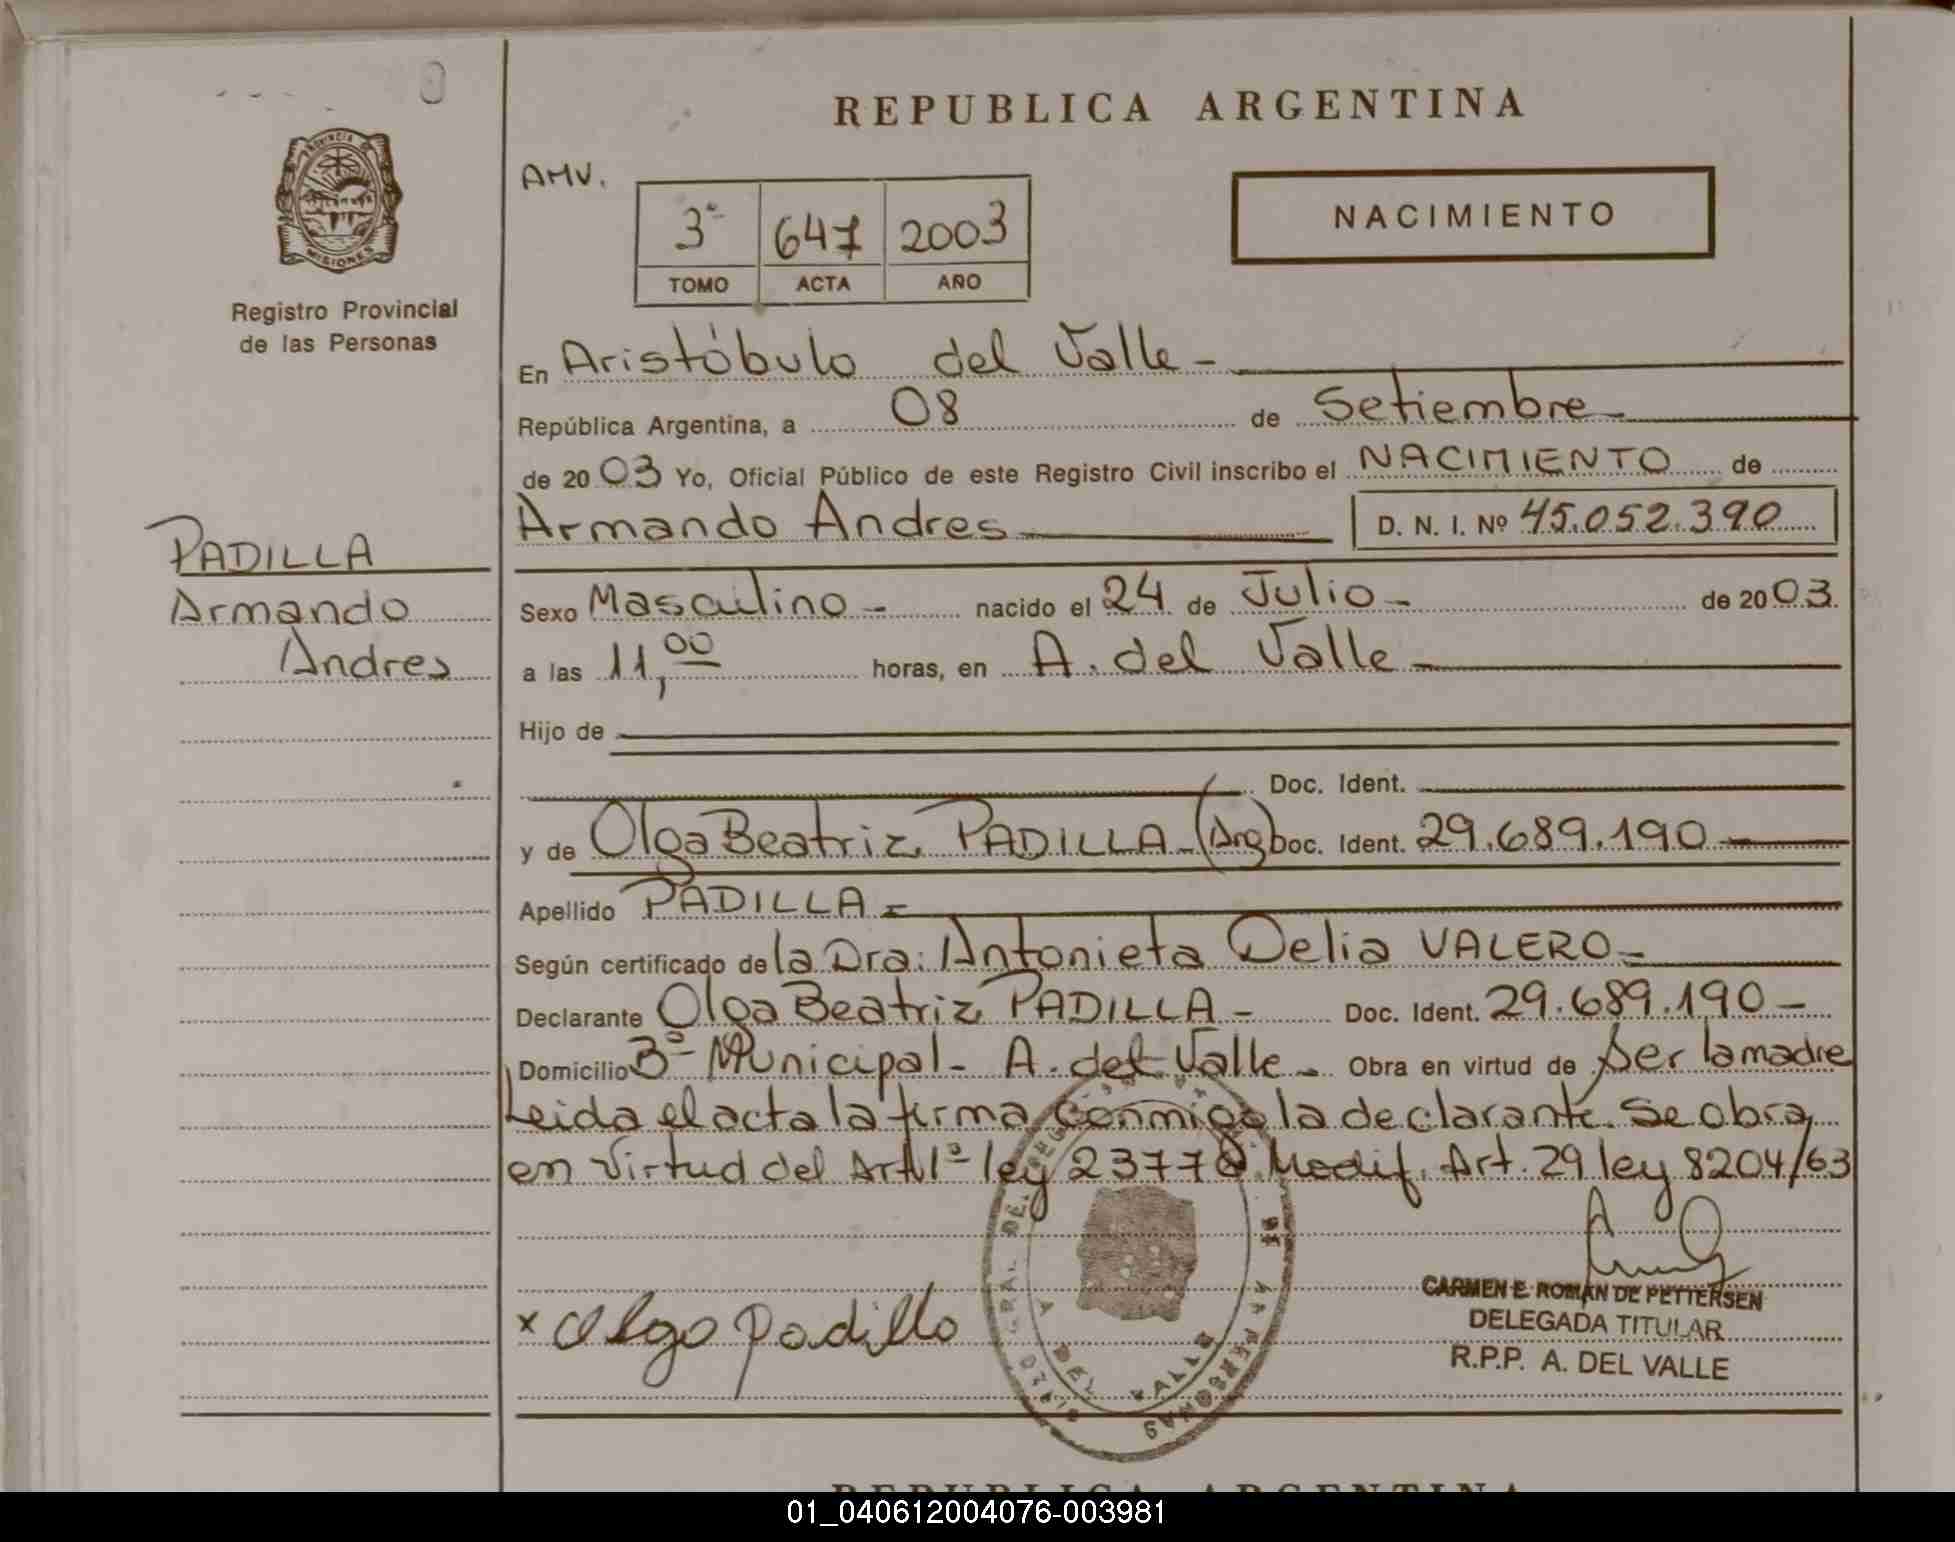 REPUBLICA ARGENTINA
PROVINCIA DE
MISIONES
Registro Provincial
de las Personas
AMV.
3º 647 2003
TOMO ACTA AÑO
NACIMIENTO
En Aristóbulo del Valle -
República Argentina, a 08 de Setiembre
de 2003 Yo, Oficial Público de este Registro Civil inscribo el NACIMIENTO de
Armando Andres D. N. I. Nº 45.052.390
PADILLA
Armando
Andres
Sexo Masculino - nacido el 24 de Julio - de 2003.
a las 11,00 horas, en A. del Valle -
Hijo de
Doc. Ident.
y de Olga Beatriz PADILLA - (Arg) Doc. Ident. 29.689.190 -
Apellido PADILLA =
Según certificado de la Dra: Antonieta Delia VALERO =
Declarante Olga Beatriz PADILLA - Doc. Ident. 29.689.190 -
Domicilio Bº Municipal - A. del Valle - Obra en virtud de ser la madre
Leida el acta la firma conmigo la declarante. Se obra
en virtud del Art. 1º ley 23776 Modif. Art. 29 ley 8204/63
x Olga Padilla
CARMEN E. ROMAN DE PETTERSEN
DELEGADA TITULAR
R.P.P. A. DEL VALLE
A DEL VALLE
PERSONAS
REPUBLICA ARGENTINA
01_040612004076-003981